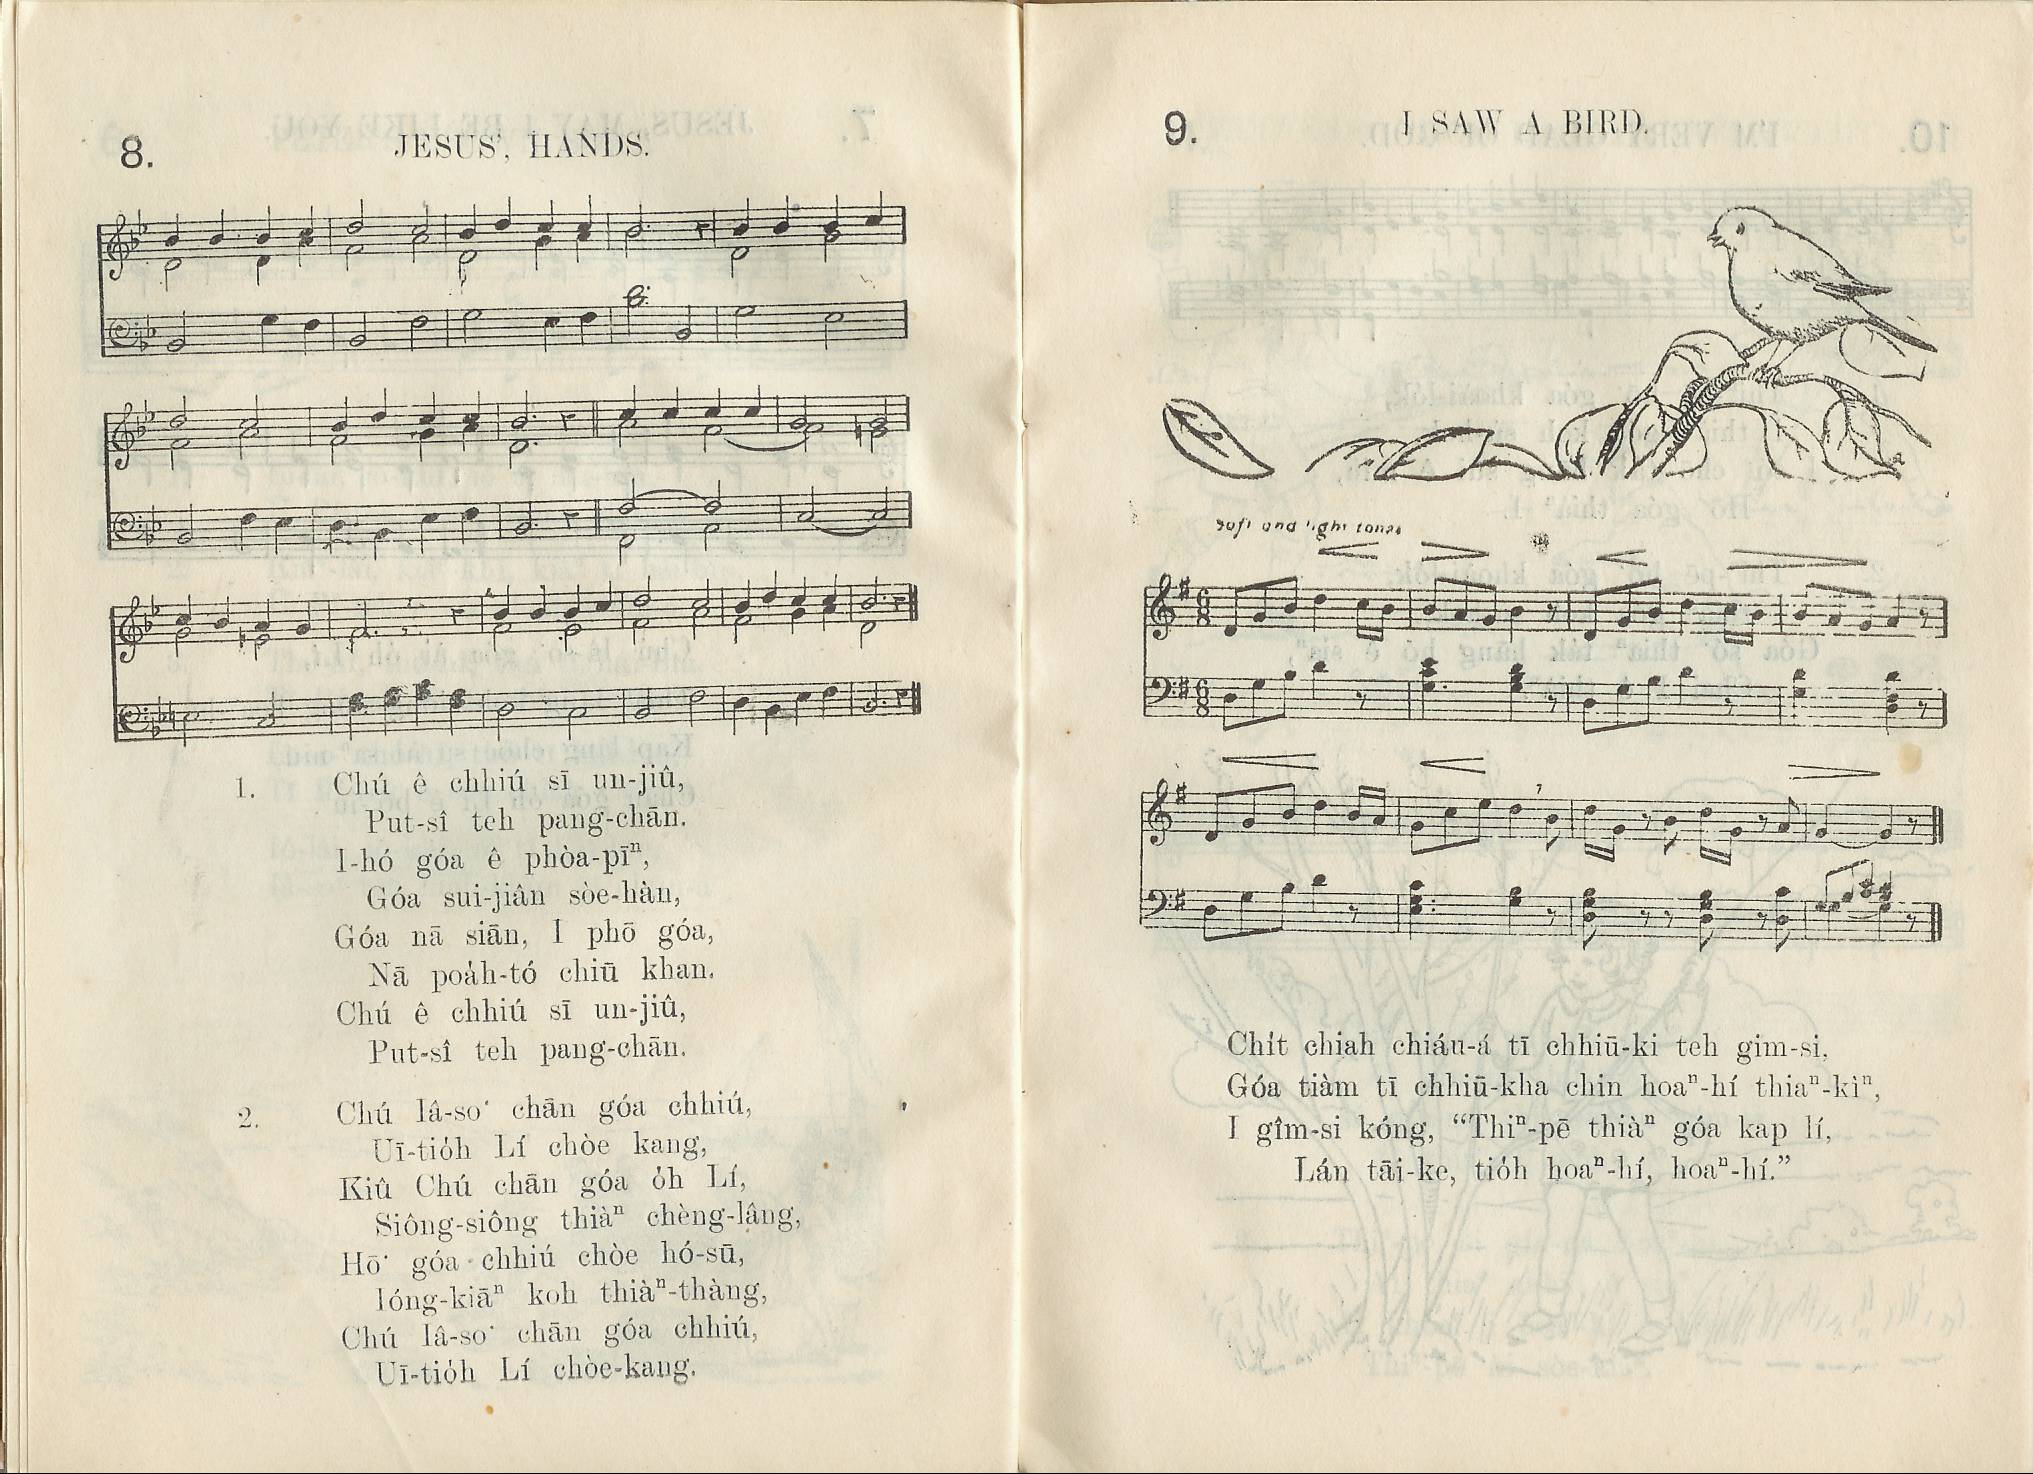 8.
JESUS', HANDS.
1. Chú ê chhiú sī un-jiû,
Put-sî teh pang-chān.
I-hó góa ê phòa-pīⁿ,
Góa sui-jiân sòe-hàn,
Góa nā siān, I phō góa,
Nā poa̍h-tó chiū khan.
Chú ê chhiú sī un-jiû,
Put-sî teh pang-chān.
2. Chú Iâ-so͘ chān góa chhiú,
Uī-tio̍h Lí chòe kang,
Kiû Chú chān góa o̍h Lí,
Siông-siông thiàⁿ chèng-lâng,
Hō͘ góa chhiú chòe hó-sū,
ióng-kiāⁿ koh thiàⁿ-thàng,
Chú Iâ-so͘ chān góa chhiú,
Uī-tio̍h Lí chòe-kang.
9.
I SAW A BIRD.
soft and light tones
Chi̍t chiah chiáu-á tī chhiū-ki teh gim-si,
Góa tiàm tī chhiū-kha chin hoaⁿ-hí thiaⁿ-kìⁿ,
I gîm-si kóng, “Thiⁿ-pē thiàⁿ góa kap lí,
Lán tāi-ke, tio̍h hoaⁿ-hí, hoaⁿ-hí.”